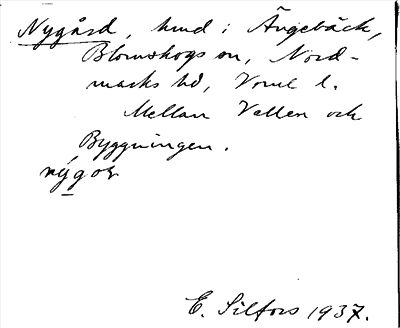 Nygård, hmd i Ängebäck,
Blomskogs sn, Nord-
marks hd, Vrml l.
Mellan Vallen och
Byggningen.
nýgoṣ
E. Silfors 1937.